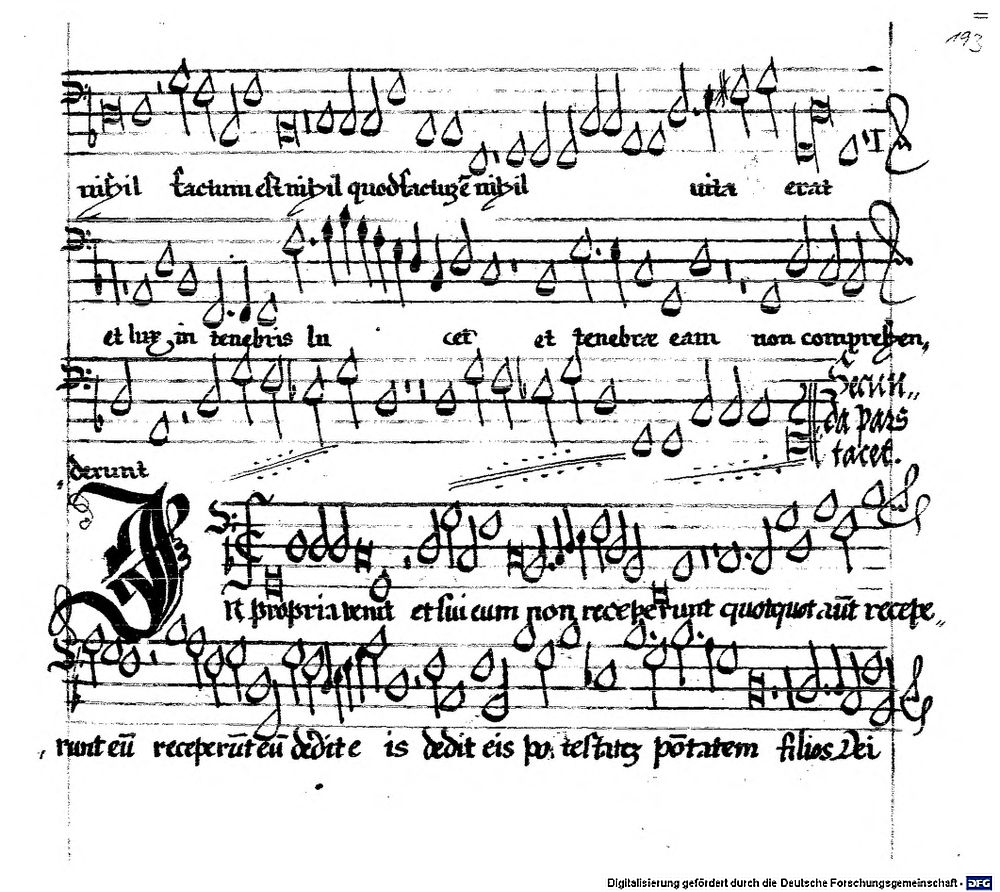 193
nihil factum est nihil quod factuz ē nihil vita erat
et lux in tenebris lu cet et tenebrae eam non comprehen„
derunt
Secun„
da pars
tacet.
In propria venit et sui eum non receperunt quotquot aūt recepe„
runt eū receperūt eū dedit e is dedit eis po. testatez pōtatem filios Dei
Digitalisierung gefördert durch die Deutsche Forschungsgemeinschaft - DFG